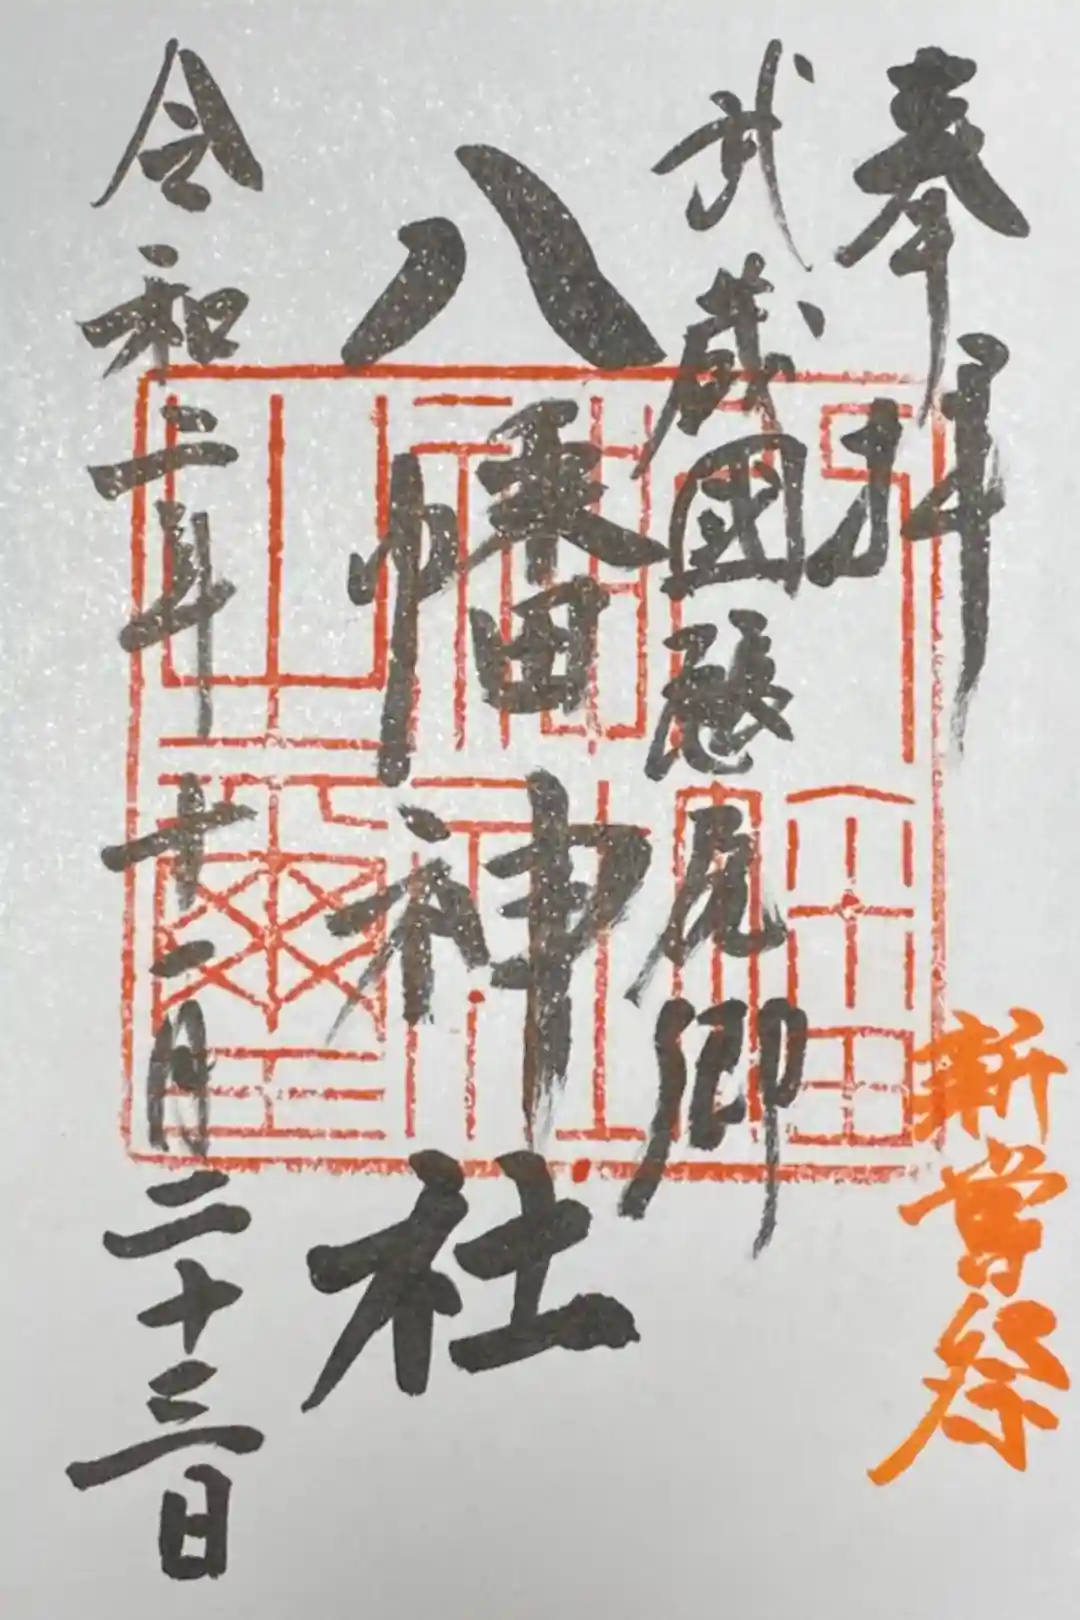 奉拝
新嘗祭
武蔵國
尾郷
八幡神社
令和二年十一月二十三日